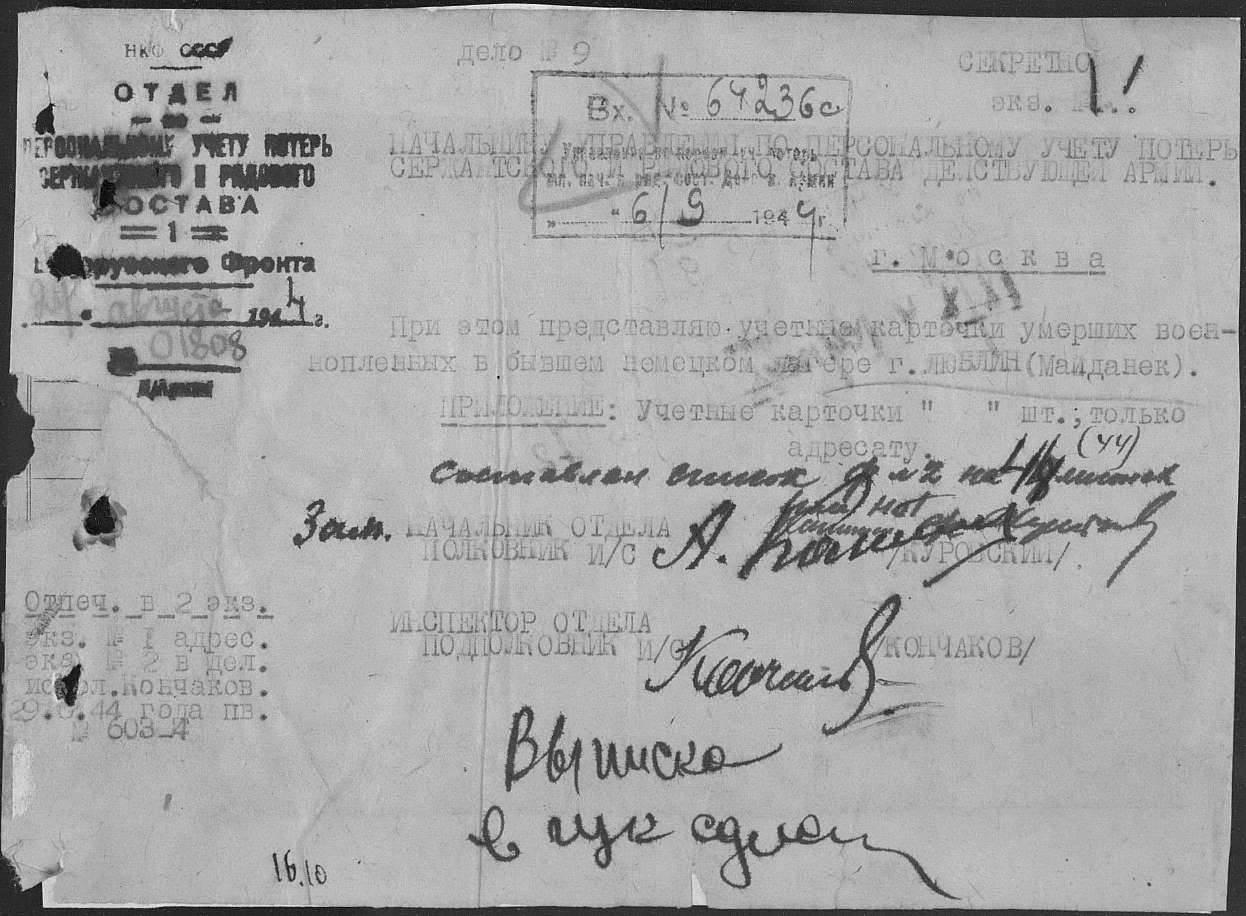 НКО СССР
ОТДЕЛ
— по —
ПЕРСОНАЛЬНОМУ УЧЕТУ ПОТЕРЬ
СЕРЖАНТСКОГО И РЯДОВОГО
СОСТАВА
= 1 =
Белорусского Фронта
августа 1944 г.
01808
дело № 9
СЕКРЕТНО
экз. №
Вх. № 64236с
Управление по персон. уч. потерь
"6/9 1944г.
НАЧАЛЬНИКУ УПРАВЛЕНИЯ ПО ПЕРСОНАЛЬНОМУ УЧЕТУ ПОТЕРЬ
СЕРЖАНТСКОГО И РЯДОВОГО СОСТАВА ДЕЙСТВУЮЩЕЙ АРМИИ.
г. Москва
При этом представляю учетные карточки умерших воен-
нопленных в бывшем немецком лагере г. ЛЮБЛИН (Майданек).
ПРИЛОЖЕНИЕ: Учетные карточки " " шт.; только
адресату.
(44)
Составлен список ф №2 на листах
Зам. НАЧАЛЬНИК ОТДЕЛА
ПОЛКОВНИК И/С /КУРОВСКИЙ/
ИНСПЕКТОР ОТДЕЛА
ПОДПОЛКОВНИК И/С /КОНЧАКОВ/
Отпеч. в 2 экз.
экз. № 1 адрес.
экз. № 2 в дел.
испол. Кончаков.
29.8.44 года пв.
№ 603_4
Выписка
в ГУК
16.10